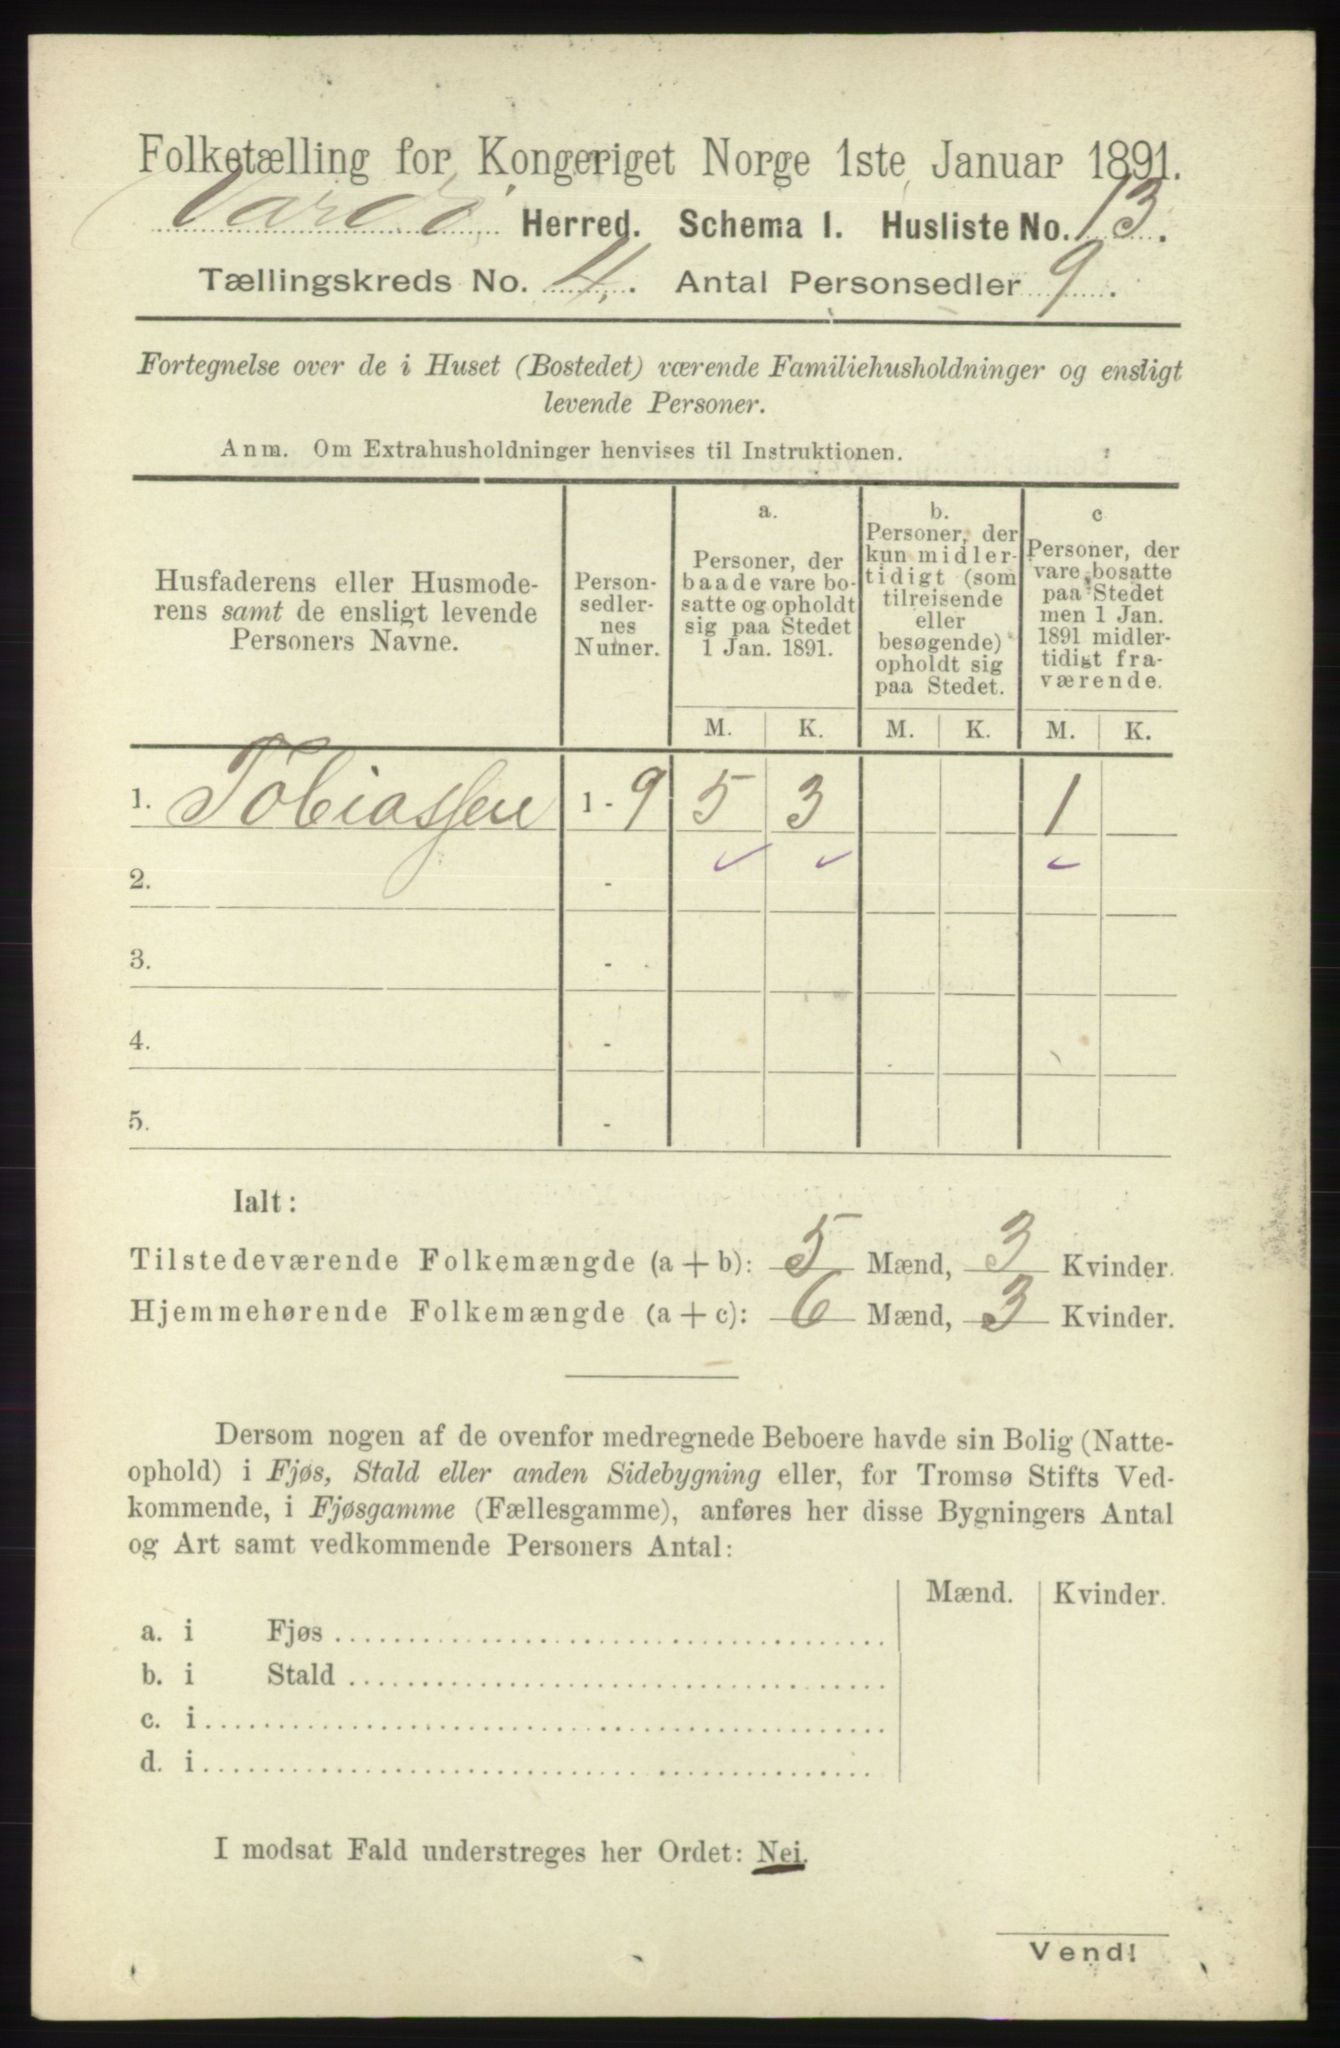 Folketælling for Kongeriget Norge 1ste Januar 1891.
Vardø Herred. Schema 1. Husliste No. 13.
Tællingskreds No. 4. Antal Personsedler 9.
Fortegnelse over de i Huset (Bostedet) værende Familiehusholdninger og ensligt
levende Personer.
Anm. Om Extrahusholdninger henvises til Instruktionen.
Husfaderens eller Husmode-
rens samt de ensligt levende
Personers Navne.
Person-
sedler-
nes
Numer.
a.
Personer, der
baade vare bo-
satte og opholdt
sig paa Stedet
1 Jan. 1891.
b.
Personer, der
kun midler-
tidigt (som
tilreisende
eller
besøgende)
opholdt sig
paa Stedet.
c
Personer, der
vare bosatte
paa Stedet
men 1 Jan.
1891 midler-
tidigt fra-
værende.
M. K. M. K. M. K.
1. Tobiassen 1 - 9 5 3 1
2. -
3. -
4. -
5. -
Ialt:
Tilstedeværende Folkemængde (a + b): 5 Mænd, 3 Kvinder.
Hjemmehørende Folkemængde (a + c): 6 Mænd, 3 Kvinder.
Dersom nogen af de ovenfor medregnede Beboere havde sin Bolig (Natte-
ophold) i Fjøs, Stald eller anden Sidebygning eller, for Tromsø Stifts Ved-
kommende, i Fjøsgamme (Fællesgamme), anføres her disse Bygningers Antal
og Art samt vedkommende Personers Antal:
Mænd. Kvinder.
a. i Fjøs
b. i Stald
c. i
d. i
I modsat Fald understreges her Ordet: Nei.
Vend!